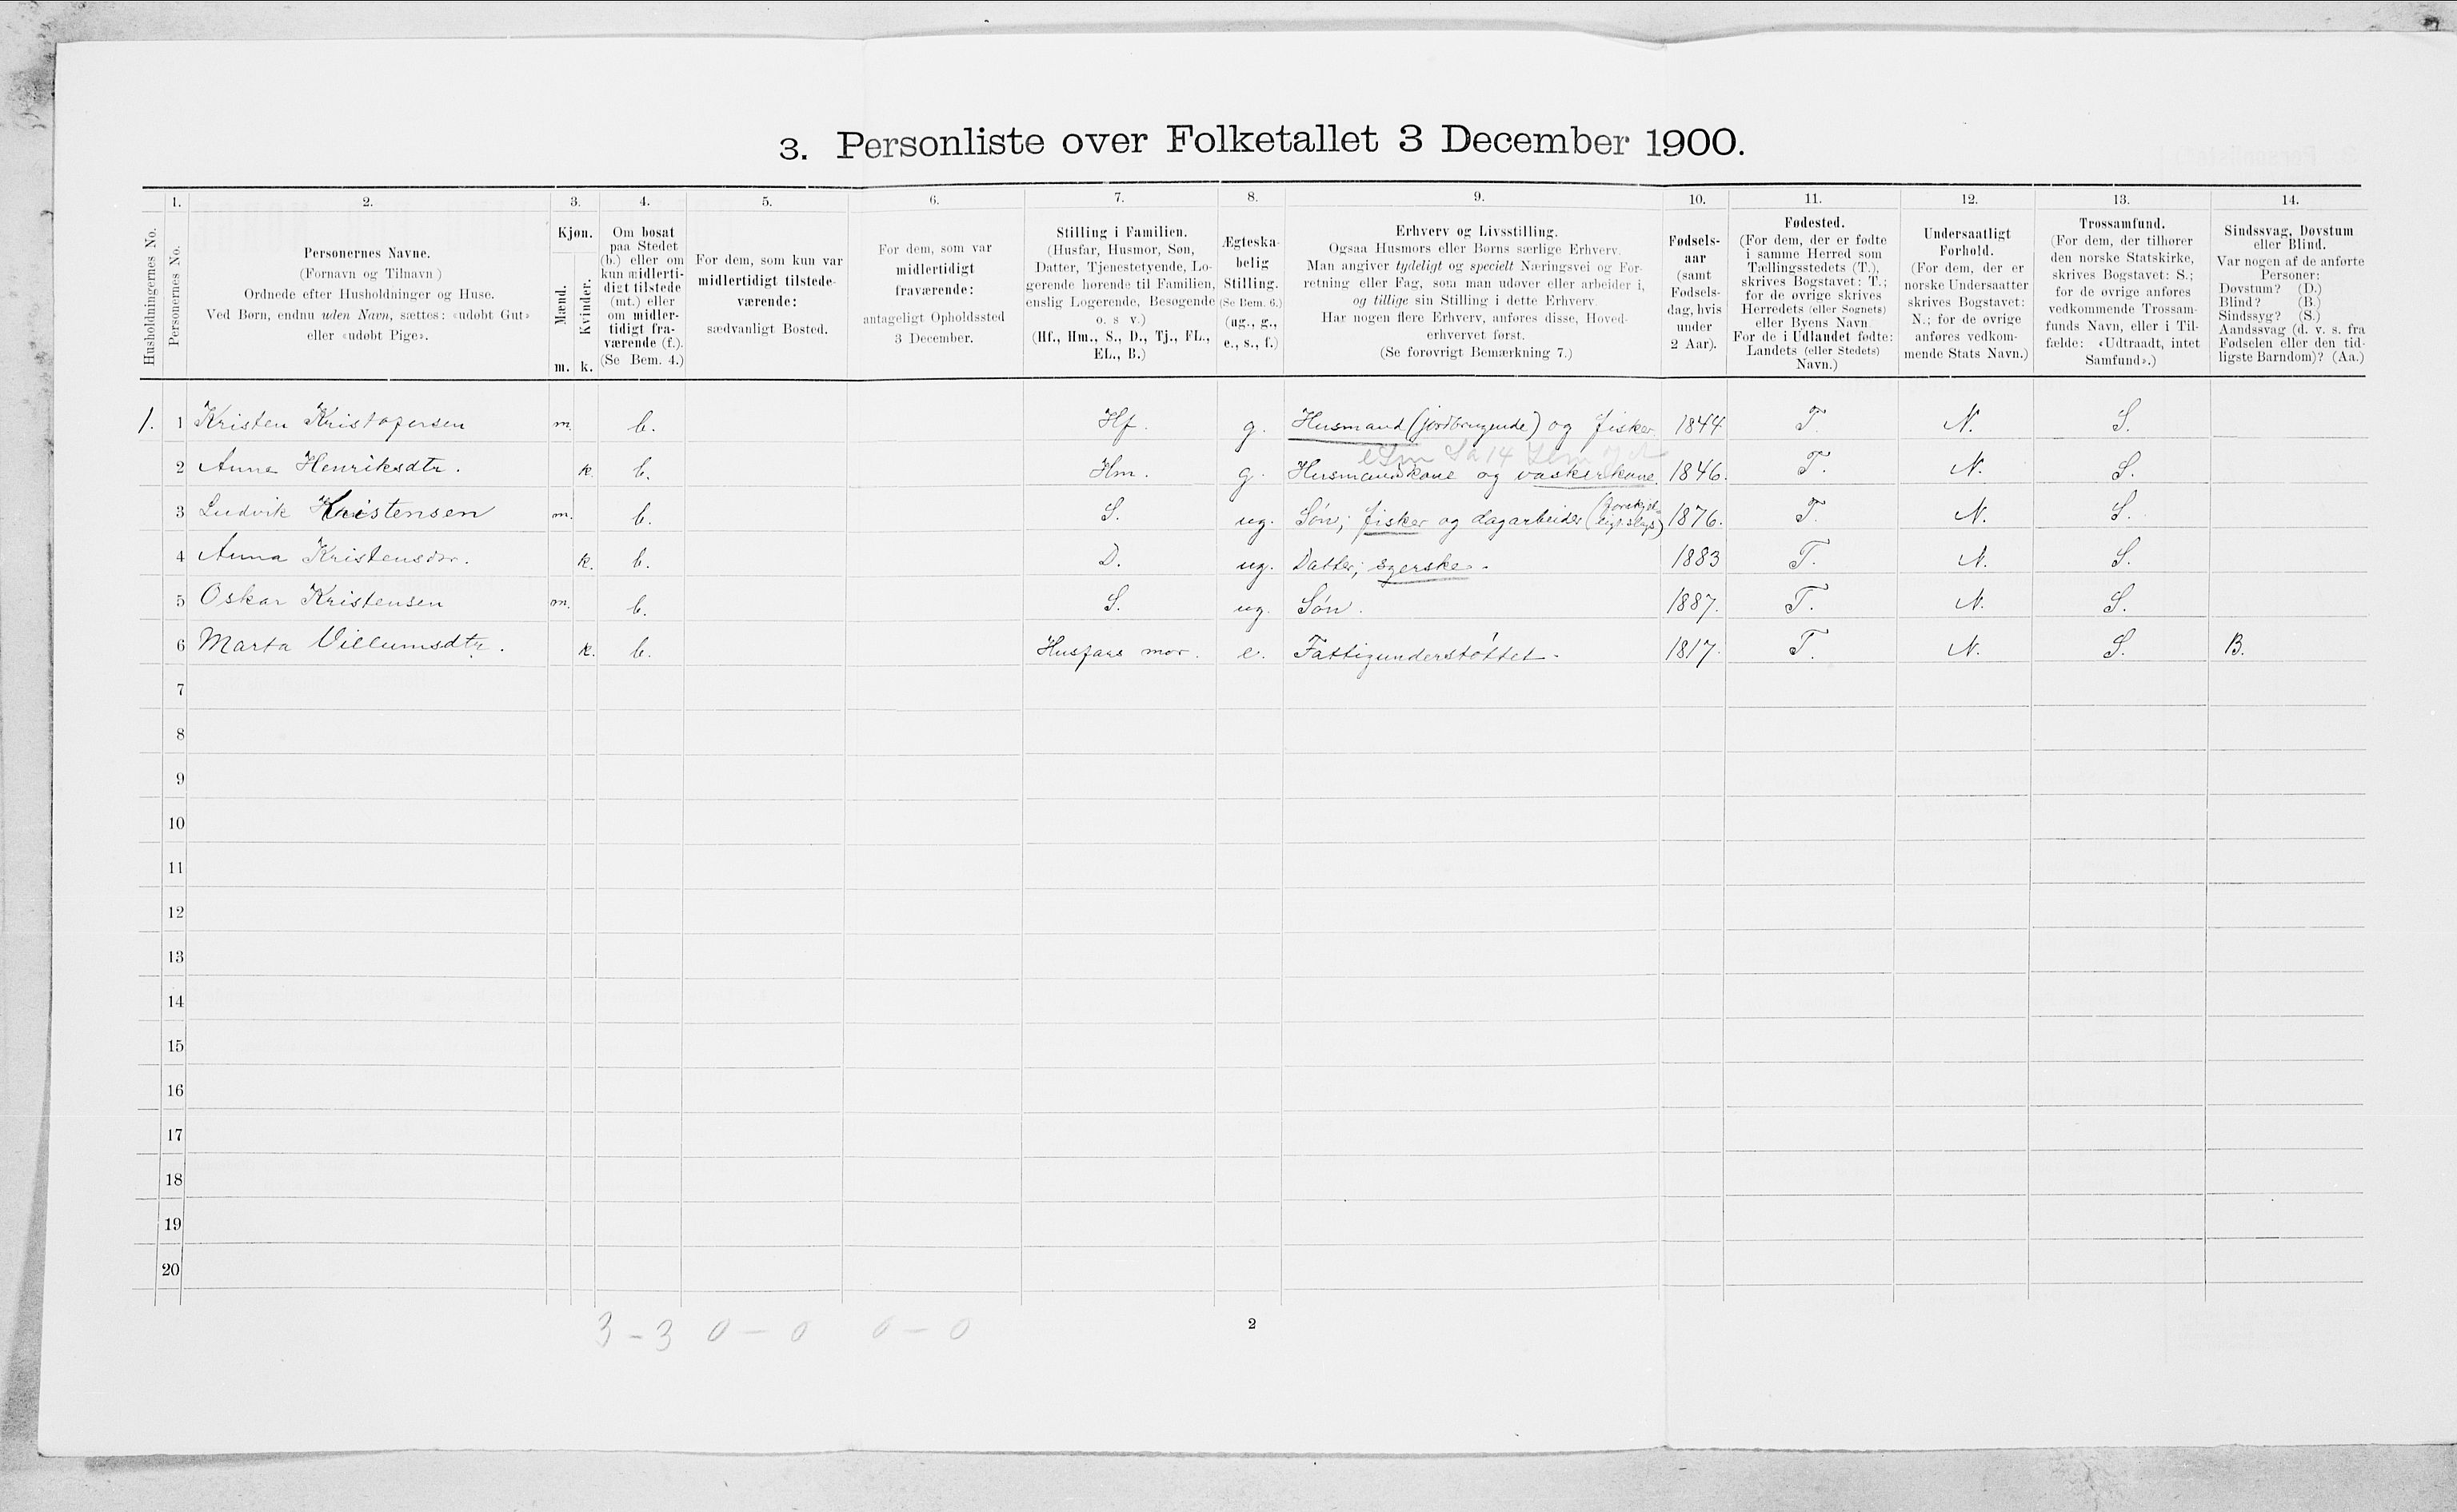 3. Personliste over Folketallet 3 December 1900.
1. 2. 3. 4. 5. 6. 7. 8. 9. 10. 11. 12. 13. 14.
Husholdningernes No.
Personernes No.
Personernes Navne.
(Fornavn og Tilnavn)
Ordnede efter Husholdninger og Huse.
Ved Børn, endnu uden Navn, sættes: «udøbt Gut»
eller «udøbt Pige».
Kjøn.
Mænd.
Kvinder.
m. k.
Om bosat
paa Stedet
(b.) eller om
kun midlerti-
digt tilstede
(mt.) eller
om midler-
tidigt fra-
værende (f.).
(Se Bem. 4.)
For dem, som kun var
midlertidigt tilstede-
værende:
sædvanligt Bosted.
For dem, som var
midlertidigt
fraværende:
antageligt Opholdssted
3 December.
Stilling i Familien.
(Husfar, Husmor, Søn,
Datter, Tjenestetyende, Lo-
gerende hørende til Familien,
enslig Logerende, Besøgende
o. s v.)
(Hf., Hm., S., D., Tj., FL.,
EL., B.)
Ægteska-
belig
Stilling.
(Se Bem. 6.)
(ug., g.,
e., s., f.)
Erhverv og Livsstilling.
Ogsaa Husmors eller Børns særlige Erhverv.
Man angiver tydeligt og specielt Næringsvei og For-
retning eller Fag, som man udøver eller arbeider i,
og tillige sin Stilling i dette Erhverv.
Har nogen flere Erhverv, anføres disse, Hoved-
erhvervet først.
(Se forøvrigt Bemærkning 7.)
Fødsels-
aar
(samt
Fødsels-
dag, hvis
under
2 Aar).
Fødested.
(For dem, der er fødte
i samme Herred som
Tællingsstedets (T.),
skrives Bogstavet: T.;
for de øvrige skrives
Herredets (eller Sognets)
eller Byens Navn.
For de i Udlandet fødte:
Landets (eller Stedets)
Navn.)
Undersaatligt
Forhold.
(For dem, der er
norske Undersaatter
skrives Bogstavet:
N.; for de øvrige
anføres vedkom-
mende Stats Navn.)
Trossamfund.
(For dem, der tilhører
den norske Statskirke,
skrives Bogstavet: S.;
for de øvrige anføres
vedkommende Trossam-
funds Navn, eller i Til-
fælde: «Udtraadt, intet
Samfund».)
Sindssvag, Døvstum
eller Blind.
Var nogen af de anførte
Personer:
Døvstum? (D.)
Blind? (B.)
Sindssyg? (S.)
Aandssvag (d. v. s. fra
Fødselen eller den tid-
ligste Barndom)? (Aa.)
1. 1 Kristen Kristofersen m. b. Hf. g. Husmand (jordbrugende) og fisker 1844 T. N. S.
2 Anne Henriksdtr. k. b. Hm. g. Husmandskone og vaskerkone. 1846. T. N. S.
3 Ludvik Kristensen m. b. S. ug. Søn; fisker og dagarbeider (forskjel-ligt slags) 1876. T. N. S.
4 Anna Kristensdtr. k. b. D. ug. Datter; syerske. 1883 T. N. S.
5 Oskar Kristensen m. b. S. ug. Søn. 1887. T. N. S.
6 Marta Villumsdtr. k. b. Husfars mor. e. Fattigunderstøttet. 1817. T. N. S. B.
7
8
9
10
11
12
13
14
15
16
17
18
19
20
3 - 3 0 - 0 0 - 0
2